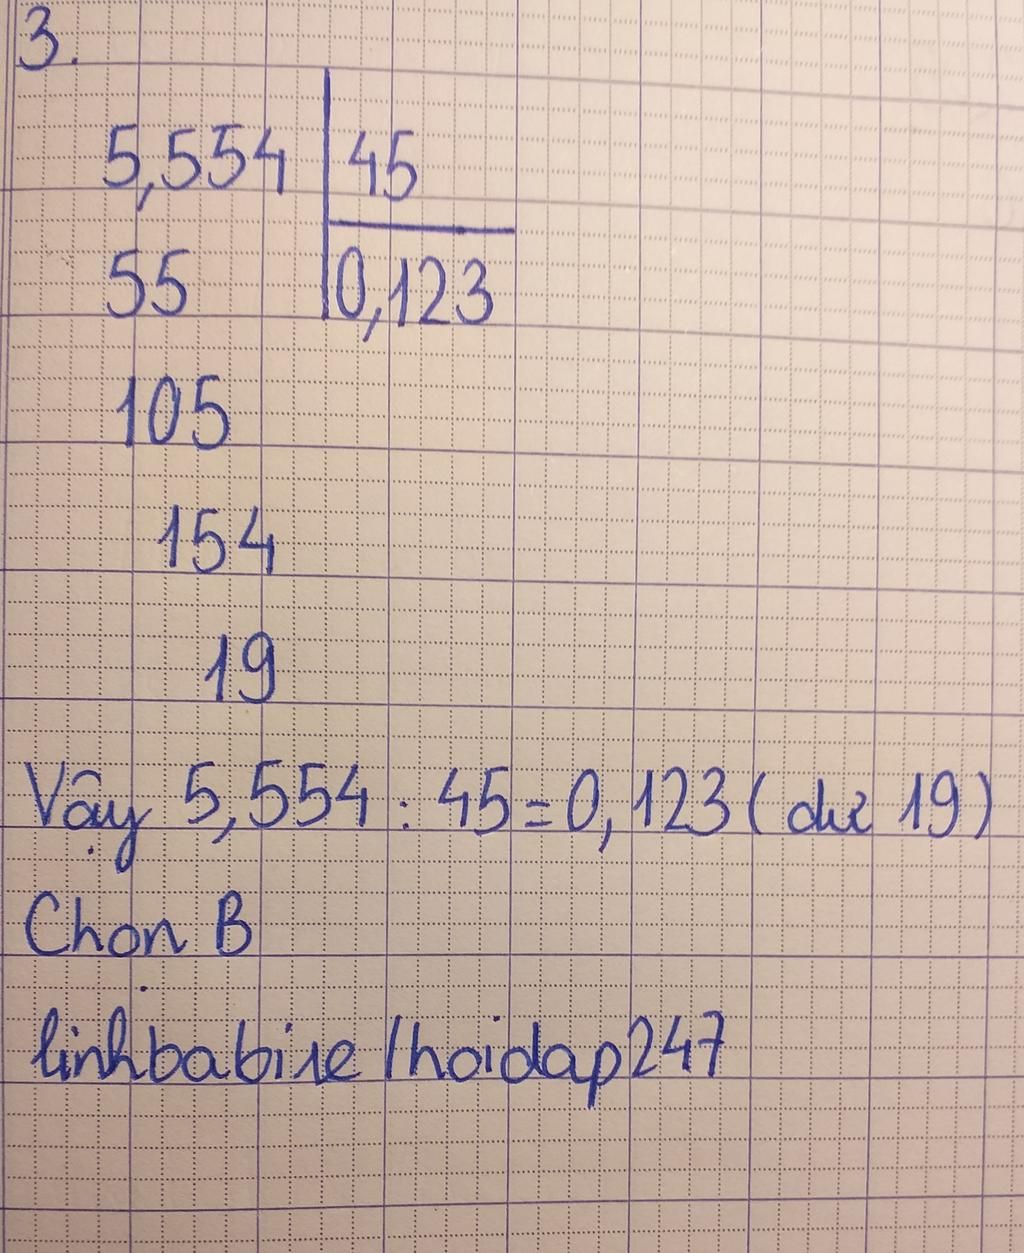 3.
5,554 45
55 0,123
105
154
19
Vậy 5,554 : 45 = 0, 123 ( dư 19 )
Chọn B
linhbabine /hoidap247